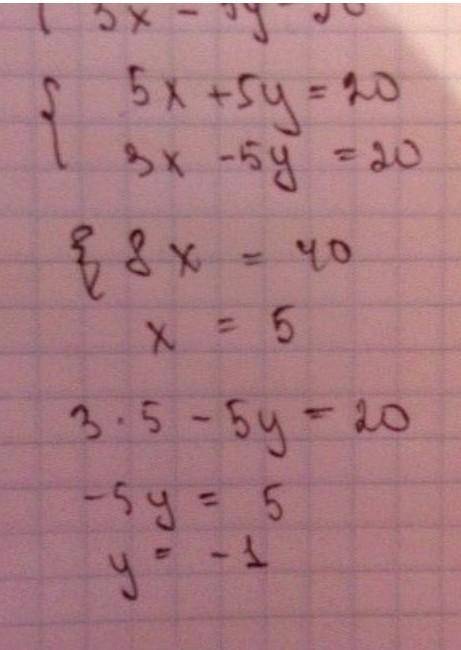 3x - 5y = 20
{ 5x + 5y = 20
3x - 5y = 20
{ 8x = 40
x = 5
3 · 5 - 5y = 20
-5y = 5
y = -1